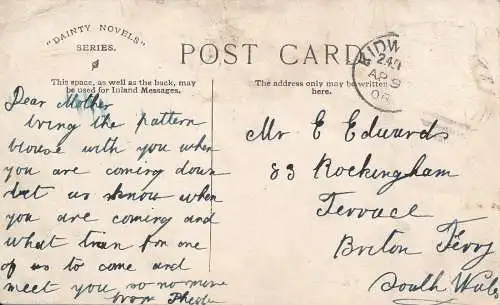 "DAINTY NOVELS"
SERIES.
POST CARD
This space, as well as the back, may
be used for Inland Messages.
The address only may be written
here.
KIDW
AP 9
06
Dear Mother
bring the pattern
blouse with you when
you are coming down
let us know when
you are coming and
what train for one
of us to come and
meet you, so no more
from
Mr E Edwards
83 Rockingham
Terrace
Briton Ferry
South Wales